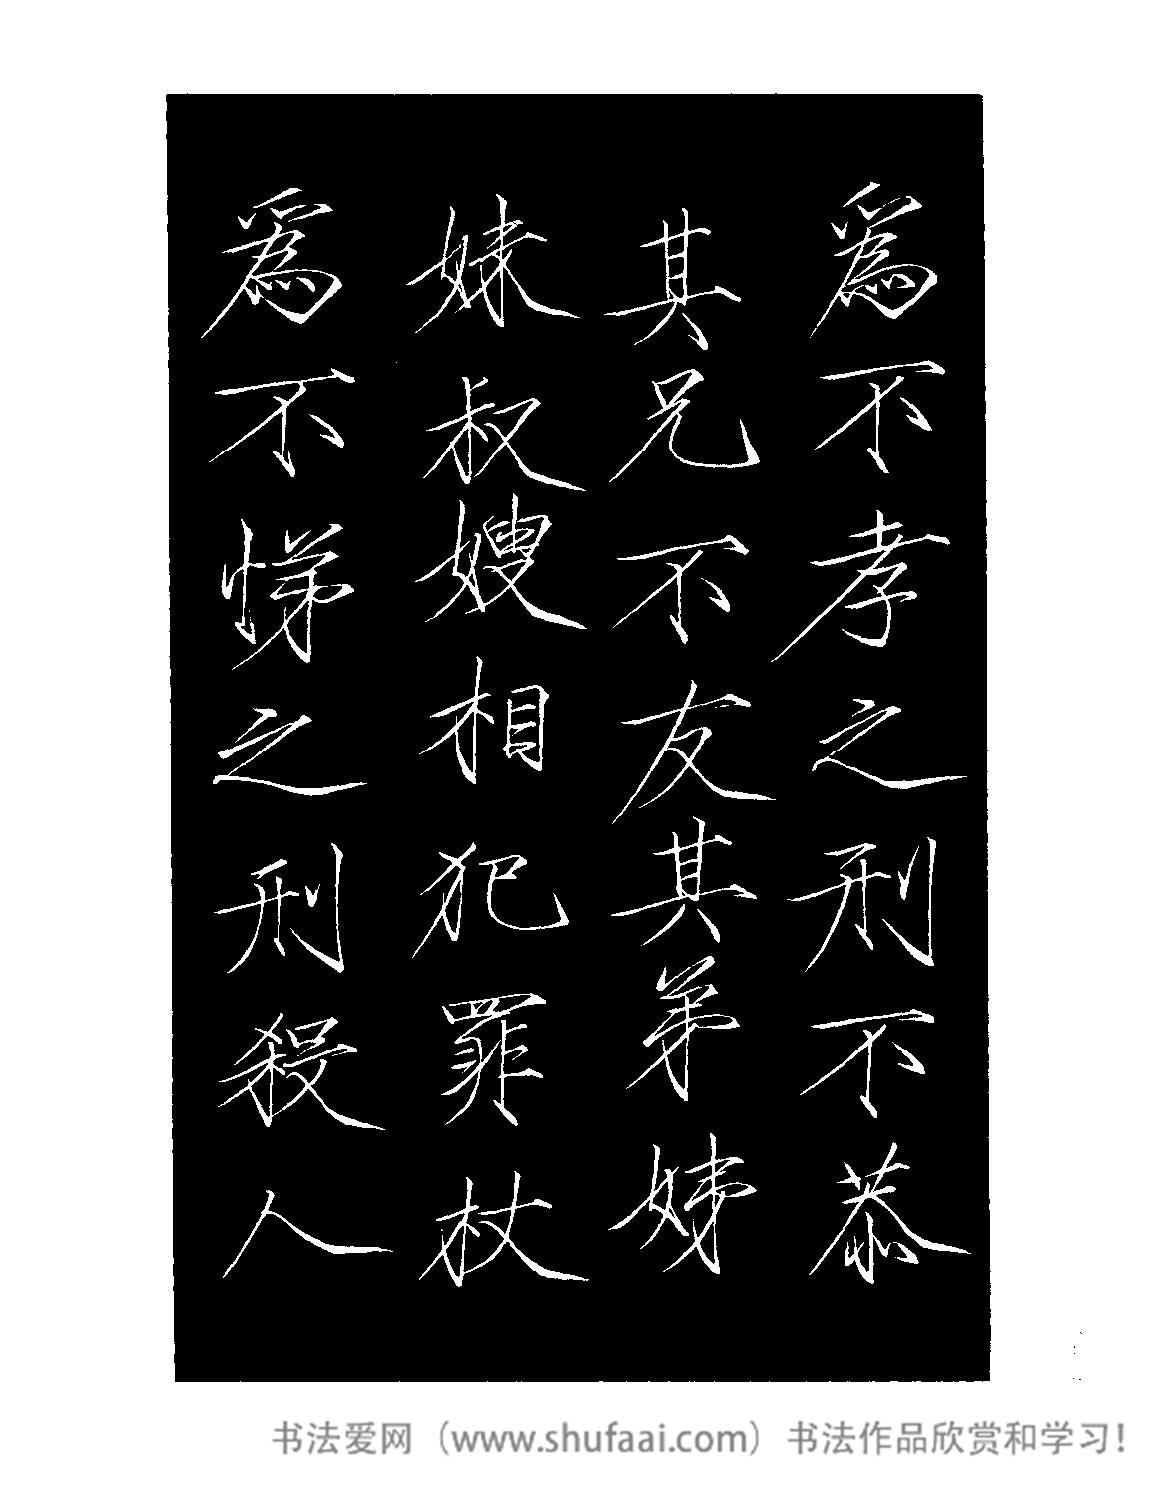 為不孝之刑不恭
其兄不友其弟姊
妹叔嫂相犯罪杖
為不悌之刑殺人
书法爱网（www.shufaai.com）书法作品欣赏和学习！